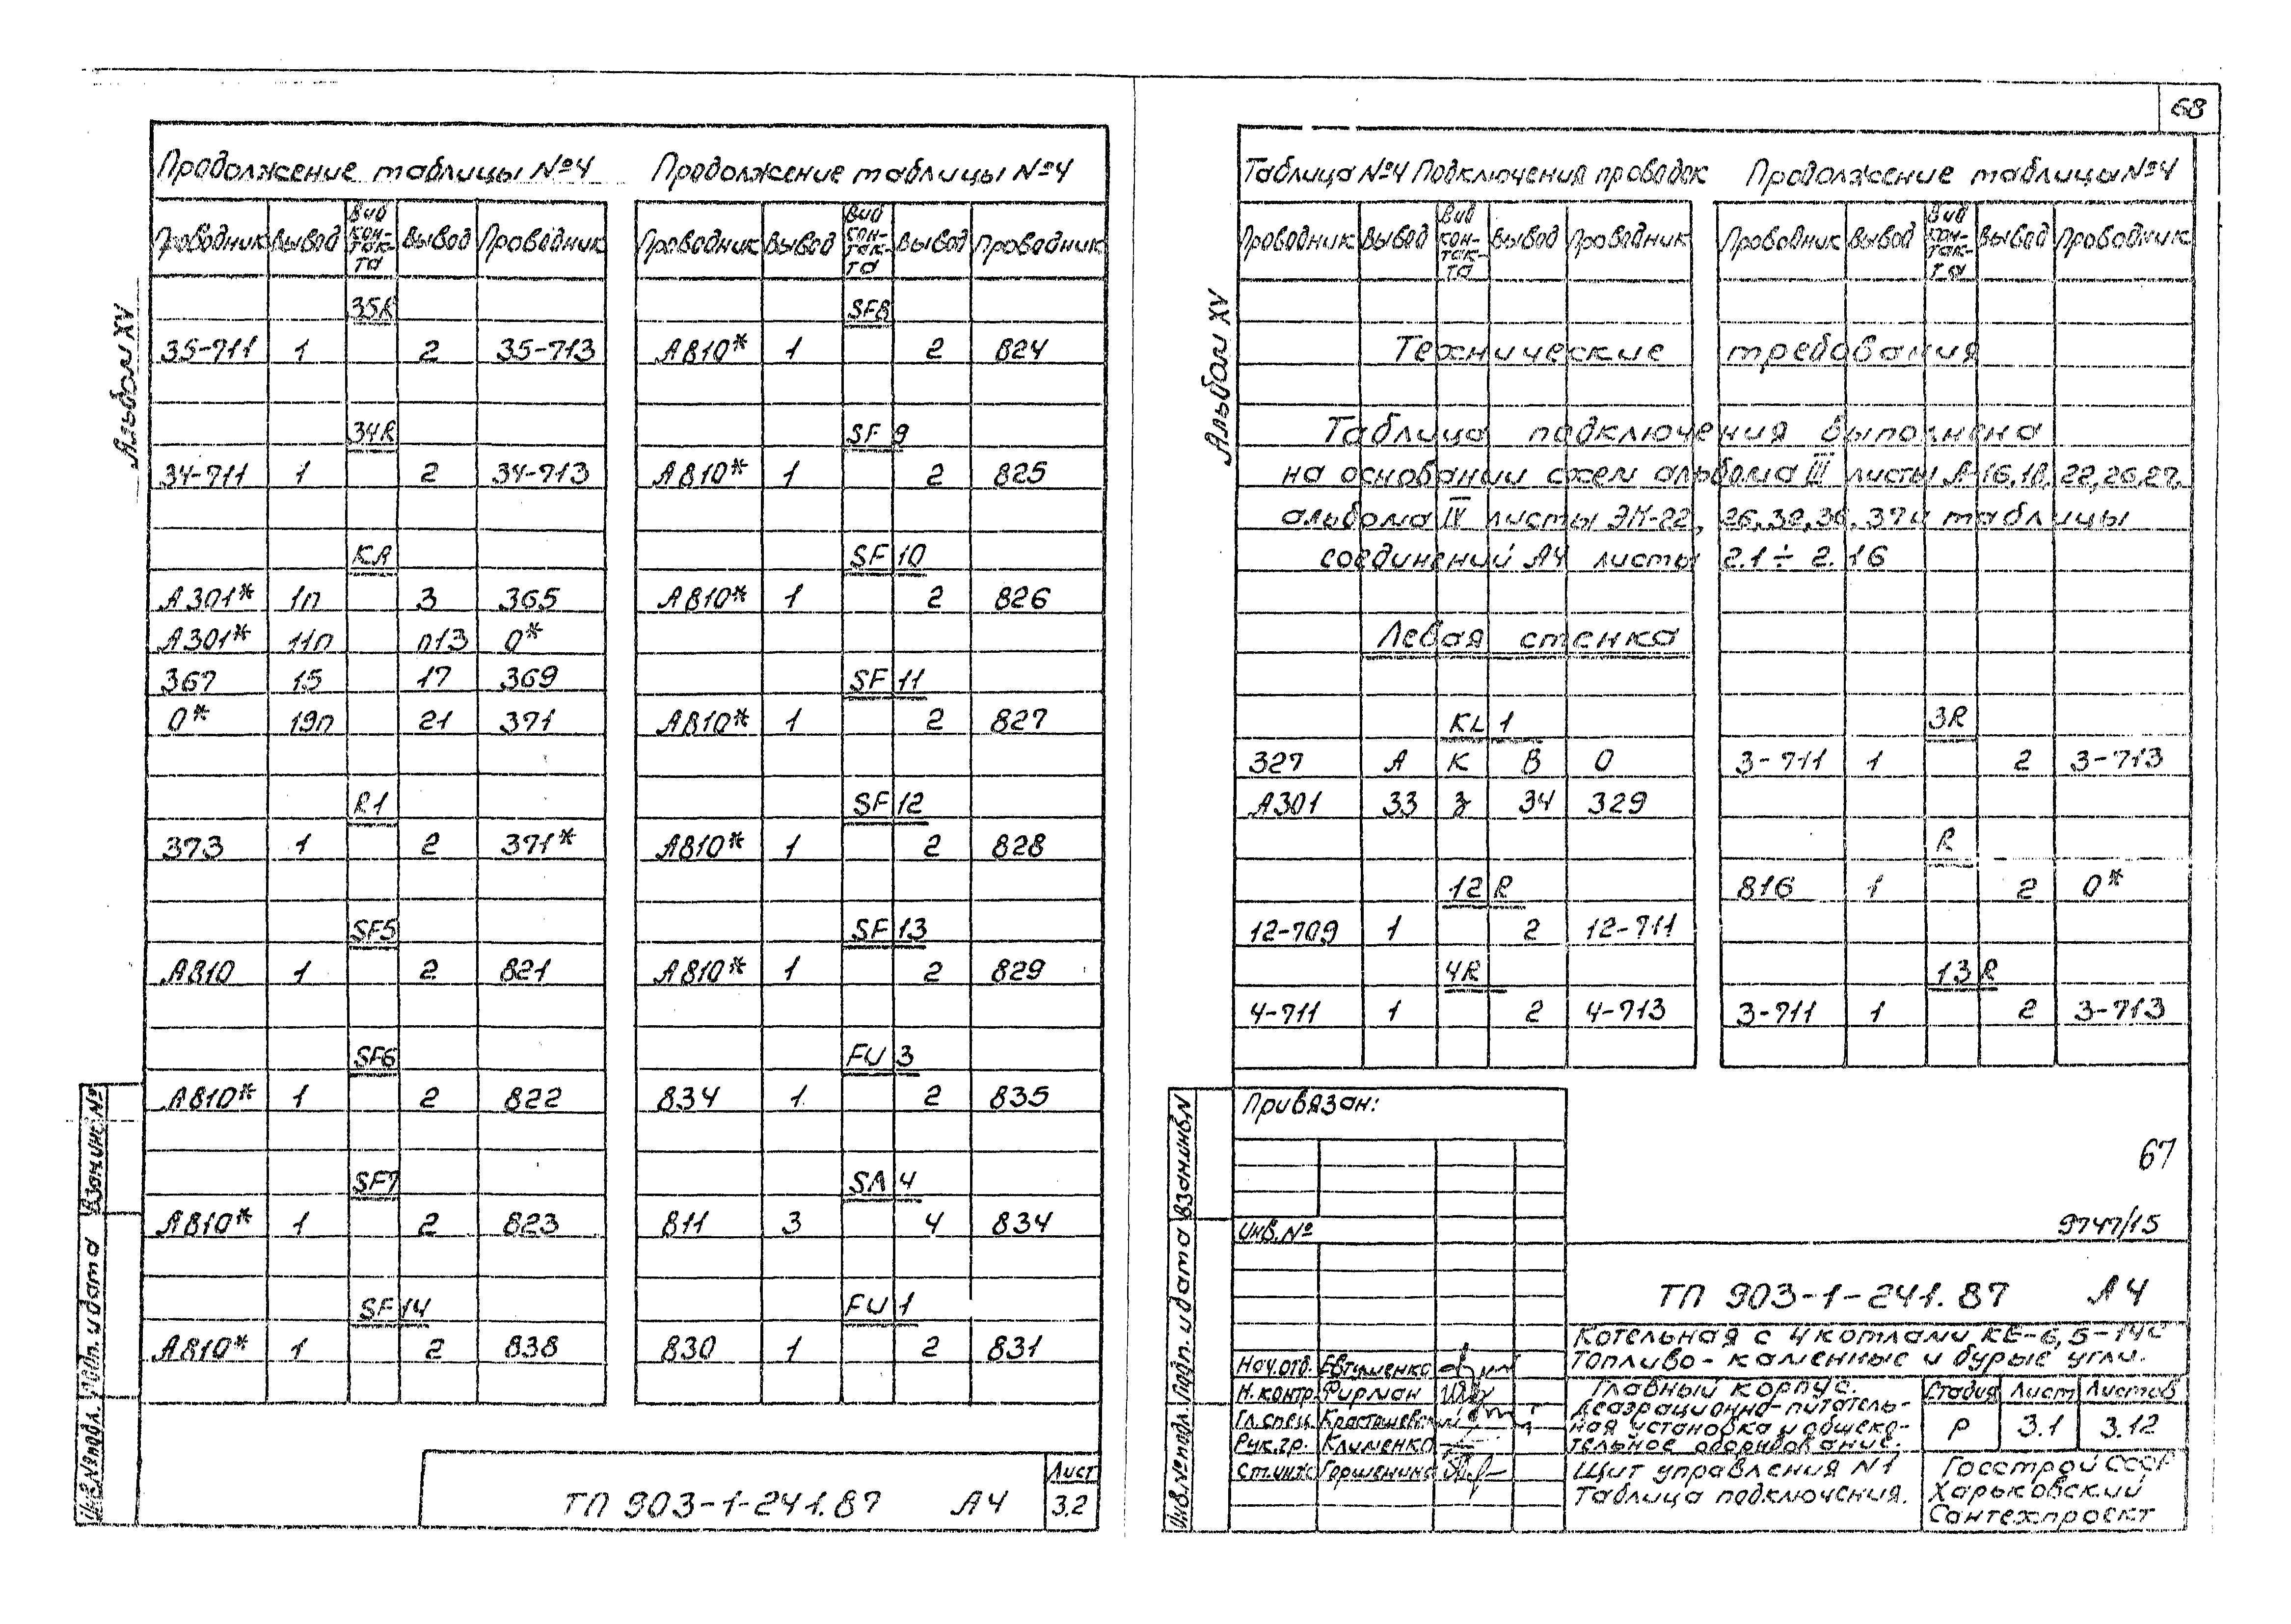 68
Альбом XV
Продолжение таблицы №4
Проводник Вывод Вид кон-так-та Вывод Проводник
35R
35-711 1 2 35-713
34R
34-711 1 2 34-713
KA
А301* 1п 3 365
А301* 11п п13 0*
367 15 17 369
0* 19п 21 371
R1
373 1 2 371*
SF5
А810 1 2 821
SF6
А810* 1 2 822
SF7
А810* 1 2 823
SF14
А810* 1 2 838
Продолжение таблицы №4
Проводник Вывод Вид кон-так-та Вывод Проводник
SF8
А810* 1 2 824
SF9
А810* 1 2 825
SF10
А810* 1 2 826
SF11
А810* 1 2 827
SF12
А810* 1 2 828
SF13
А810* 1 2 829
FU3
834 1 2 835
SA4
811 3 4 834
FU1
830 1 2 831
Инв.№подл. Подп. и дата Взам.инв.№
ТП 903-1-241.87 А4
Лист
3.2
Альбом XV
Таблица №4 Подключения проводок
Продолжение таблицы №4
Проводник Вывод Вид кон-так-та Вывод Проводник
Проводник Вывод Вид кон-так-та Вывод Проводник
Технические требования
Таблица подключения выполнена
на основании схем альбома III листы А-16,18,22,26,27,
альбома IV листы ЭМ-22, 26,32,36,37 и таблицы
соединений А4 листы 2.1÷2.16
Левая стенка
KL1
327 А К В 0
А301 33 з 34 329
12R
12-709 1 2 12-711
4R
4-711 1 2 4-713
3R
3-711 1 2 3-713
R
816 1 2 0*
13R
3-711 1 2 3-713
Привязан:
Инв.№
67
9747/15
ТП 903-1-241.87 А4
Котельная с 4 котлами КЕ-6,5-14С
Топливо-каменные и бурые угли.
Нач.отд. Евтушенко
Н.контр. Фирман
Гл.спец.
Рук.гр. Клименко
Ст.инж.
Главный корпус.
Деаэрационно-питатель-
ная установка и общеко-
тельное оборудование.
Стадия Лист Листов
Р 3.1 3.12
Щит управления №1
Таблица подключения.
Госстрой СССР
Харьковский
Сантехпроект
Инв.№подл. Подп. и дата Взам.инв.N